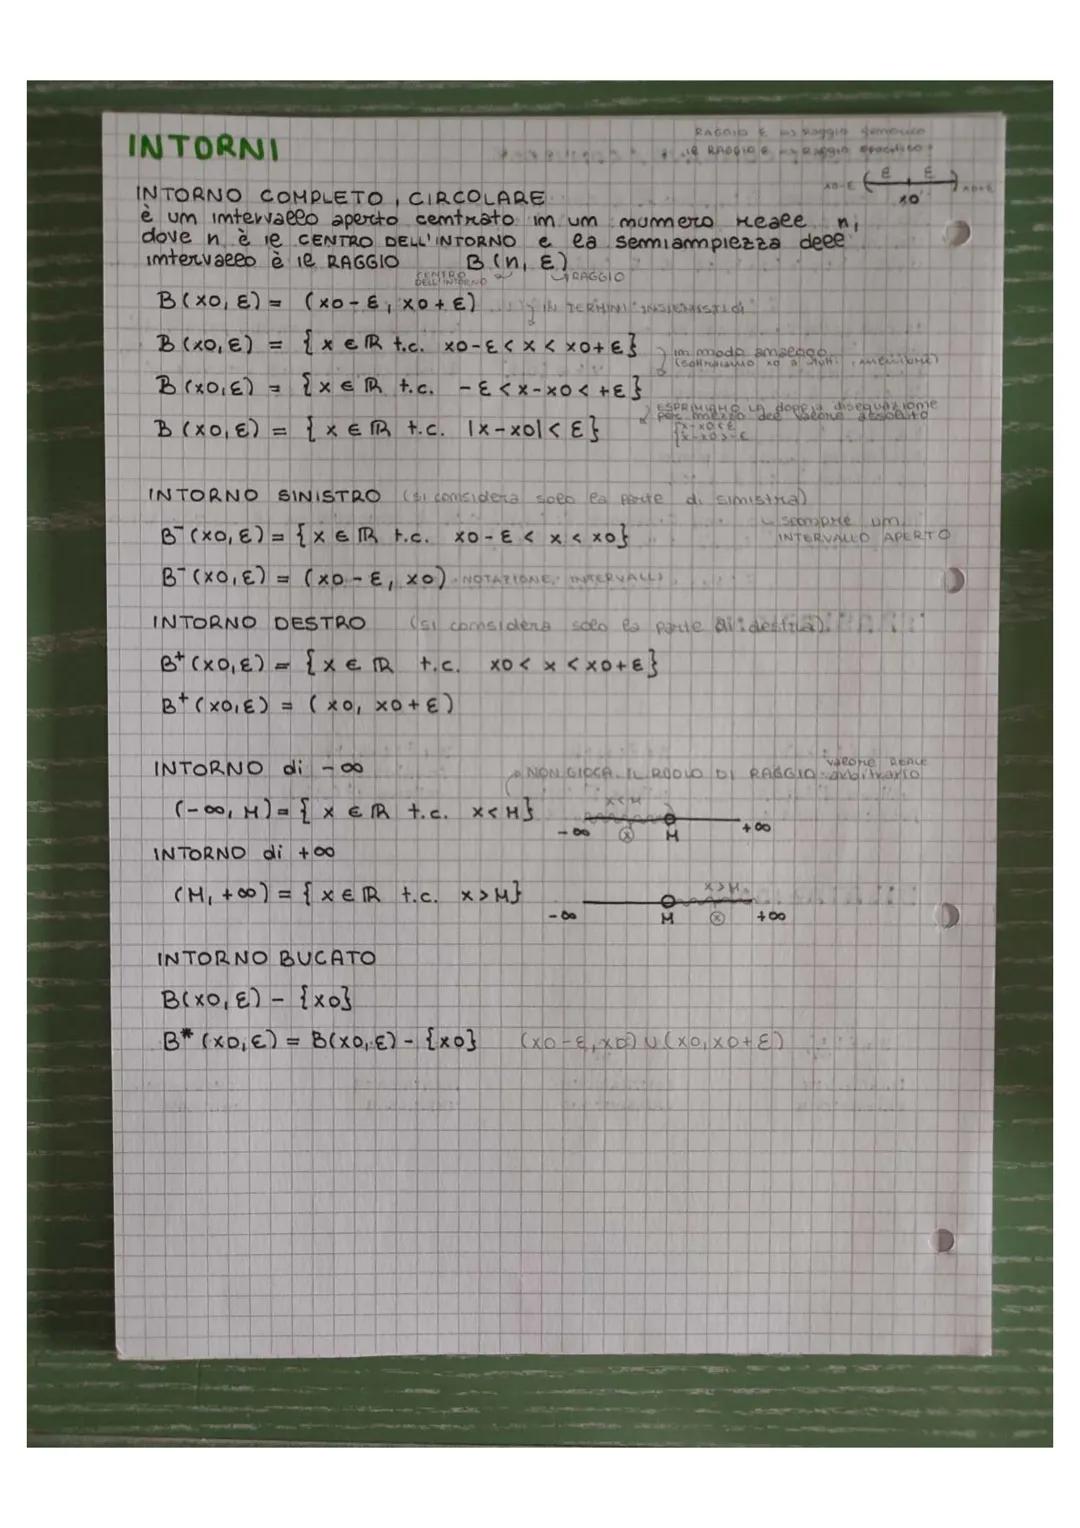 INTORNI
RAGGIO E => raggio generico
INTORNO COMPLETO, CIRCOLARE
è un intervallo aperto centrato in un numero reale n,
dove n è il CENTRO DELL'INTORNO e la semiampiezza dell'
intervallo è il RAGGIO B(n, ε)
CENTRO DELL'INTORNO RAGGIO
x0-ε ( ε ε ) x0+ε
x0
B(x0, ε) = (x0-ε, x0+ε) IN TERMINI INSIEMISTICI
B(x0, ε) = {x ∈ ℝ t.c. x0-ε < x < x0+ε}
in modo analogo
B(x0, ε) = {x ∈ ℝ t.c. -ε < x-x0 < +ε}
ESPRIMIAMO LA doppia disequazione
per mezzo del valore assoluto
B(x0, ε) = {x ∈ ℝ t.c. |x-x0| < ε}
{x-x0<ε
{x-x0>-ε
INTORNO SINISTRO (si considera solo la parte di sinistra)
sempre un
INTERVALLO APERTO
B⁻(x0, ε) = {x ∈ ℝ t.c. x0-ε < x < x0}
B⁻(x0, ε) = (x0-ε, x0) NOTAZIONE INTERVALLI
INTORNO DESTRO (si considera solo la parte di destra)
B⁺(x0, ε) = {x ∈ ℝ t.c. x0 < x < x0+ε}
B⁺(x0, ε) = (x0, x0+ε)
INTORNO di -∞
NON GIOCA IL RUOLO DI RAGGIO valore REALE arbitrario
(-∞, M) = {x ∈ ℝ t.c. x<M}
x<M
-∞ x M +∞
INTORNO di +∞
(M, +∞) = {x ∈ ℝ t.c. x>M}
x>M
-∞ M x +∞
INTORNO BUCATO
B(x0, ε) - {x0}
B*(x0, ε) = B(x0, ε) - {x0} (x0-ε, x0) ∪ (x0, x0+ε)